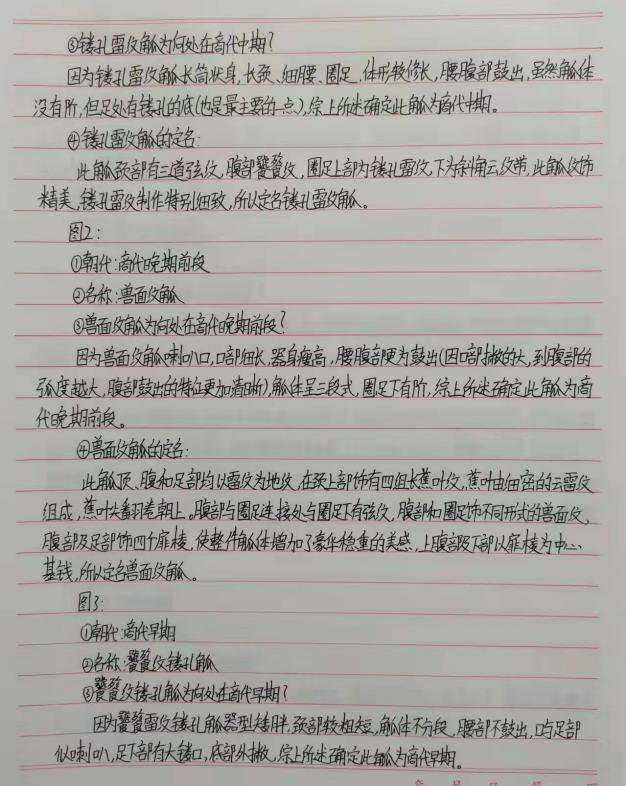 ③镂孔雷纹觚为何处在商代中期?
因为镂孔雷纹觚长筒状身,长颈、细腰、圈足、体形较修长,腰腹部鼓出,虽然觚体
没有阶,但足处有镂孔的底(也是最主要的一点),综上所述确定此觚为商代中期。
④镂孔雷纹觚的定名:
此觚颈部有三道弦纹,腹部饕餮纹,圈足上部为镂孔雷纹,下为斜角云纹带,此觚纹饰
精美,镂孔雷纹制作特别细致,所以定名镂孔雷纹觚。
图2:
①朝代:商代晚期前段
②名称:兽面纹觚
③兽面纹觚为何处在商代晚期前段?
因为兽面纹觚喇叭口,口部细长,器身瘦高,腰腹部更为鼓出(因口部撇的大,到腹部的
弧度越大,腹部鼓出的特征更加清晰)觚体呈三段式,圈足下有阶,综上所述确定此觚为商
代晚期前段。
④兽面纹觚的定名:
此觚颈、腹和足部均以雷纹为地纹,在颈上部饰有四组长蕉叶纹,蕉叶由细密的云雷纹
组成,蕉叶尖翻卷朝上。腹部与圈足连接处与圈足下有弦纹,腹部和圈足饰不同形式的兽面纹,
腹部及足部饰四个扉棱,使整件觚体增加了豪华稳重的美感,上腹部及下部以扉棱为中心
基钱,所以定名兽面纹觚。
图3:
①朝代:商代早期
②名称:饕餮纹镂孔觚
③饕餮纹镂孔觚为何处在商代早期?
因为饕餮雷纹镂孔觚器型矮胖,颈部较粗短,觚体不分段,腰部不鼓出,口与足部
似喇叭,足下部有大镂口,底部外撇,综上所述确定此觚为商代早期。